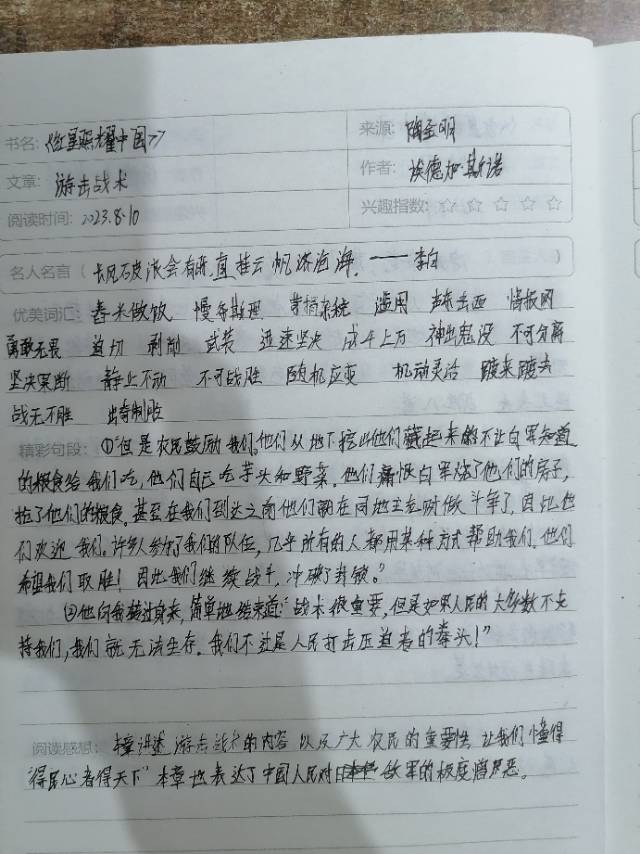 书名: 《红星照耀中国》 来源: 陶金明
文章: 游击战术 作者: 埃德加·斯诺
阅读时间: 2023.8.10 兴趣指数: ☆ ☆ ☆ ☆ ☆
名人名言 ( 长风破浪会有时,直挂云帆济沧海. ——李白 )
优美词汇: 舂米做饭 慢条斯理 滥用 声东击西 情报网
勇敢无畏 迫切 剥削 武装 迅速坚决 成千上万 神出鬼没 不可分离
坚决果断 静止不动 不可战胜 随机应变 机动灵活 踱来踱去
战无不胜 出奇制胜
精彩句段: ①"但是农民鼓励我们。他们从地下挖出他们藏起来的不让白军知道
的粮食给我们吃,他们自己吃芋头和野菜。他们痛恨白军烧了他们的房子,
抢了他们的粮食。甚至在我们到达之前他们就在同地主老财做斗争了,因此他
们欢迎我们。许多人参加了我们的队伍,几乎所有的人都用某种方式帮助我们。他们
希望我们取胜!因此我们继续战斗,冲破了封锁。"
②他向我转过身来,简单地结束道:"战术很重要,但是如果人民的大多数不支
持我们,我们就无法生存。我们不过是人民打击压迫者的拳头!"
阅读感想: 本章讲述游击战术的内容以及广大农民的重要性,让我们懂得
"得民心者得天下"本章也表达了中国人民对敌军的极度憎恶。